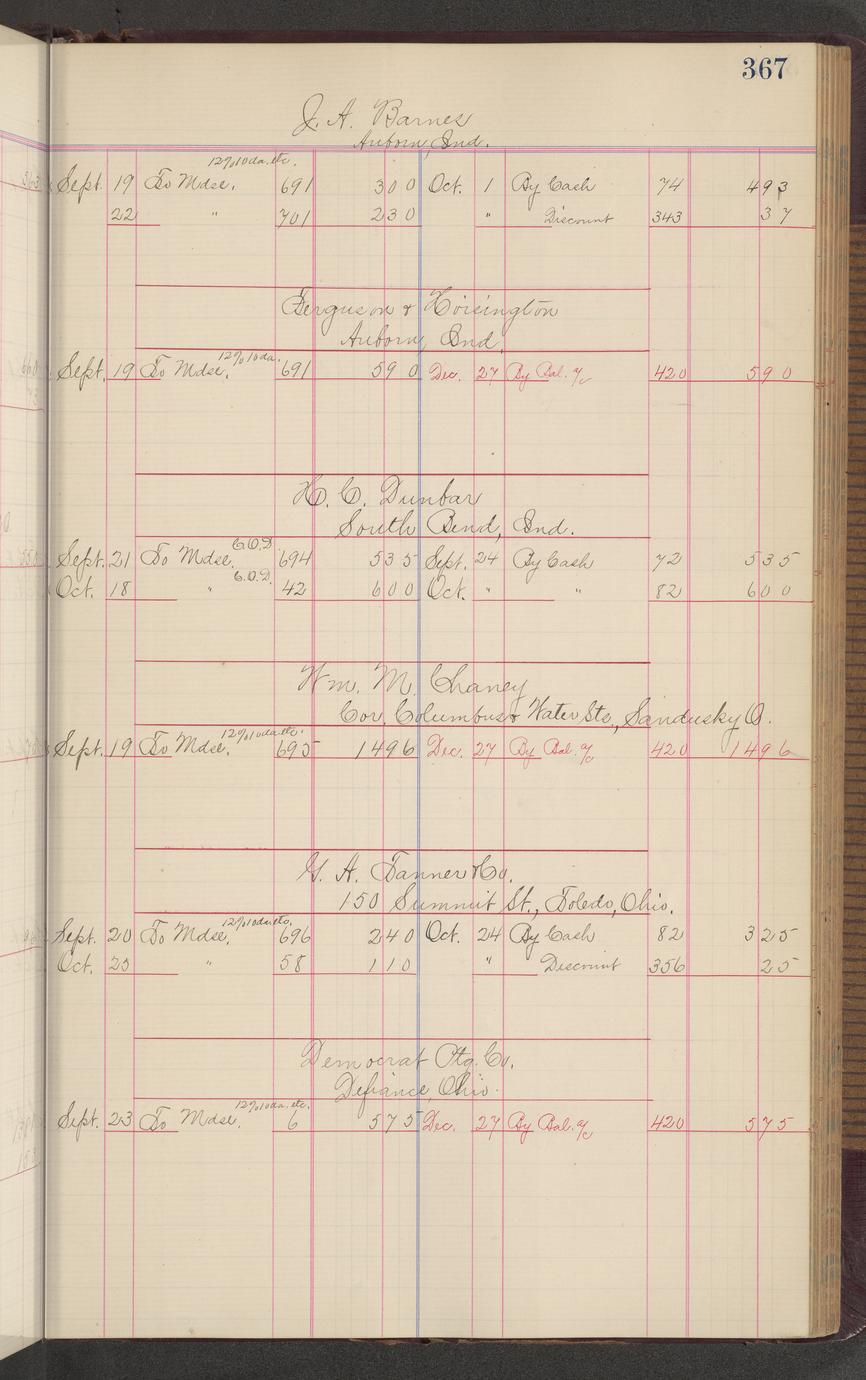 367
J. A. Barnes
Auborn, Ind.
12%10da.etc.
Sept. 19 To Mdse. 691 300 Oct. 1 By Cash 74 493
22 " 701 230 " Discount 343 37
Ferguson & Hoisington
Auborn, Ind.
12%10da.
Sept. 19 To Mdse. 691 590 Dec. 27 By Bal. a/c 420 590
H. C. Dunbar
South Bend, Ind.
C.O.D.
Sept. 21 To Mdse. 694 535 Sept. 24 By Cash 72 535
C.O.D.
Oct. 18 " 42 600 Oct. " " 82 600
Wm. M. Chaney
Cor. Columbus & Water Sts., Sandusky O.
12%10da.etc.
Sept. 19 To Mdse. 695 1496 Dec. 27 By Bal. a/c 420 1496
G. A. Tanner & Co.
150 Summit St., Toledo, Ohio.
12%10da.etc.
Sept. 20 To Mdse. 696 240 Oct. 24 By Cash 82 325
Oct. 25 " 58 110 " Discount 356 25
Democrat Ptg. Co.
Defiance, Ohio.
12%10da.etc.
Sept. 23 To Mdse. 6 575 Dec. 27 By Bal. a/c 420 575